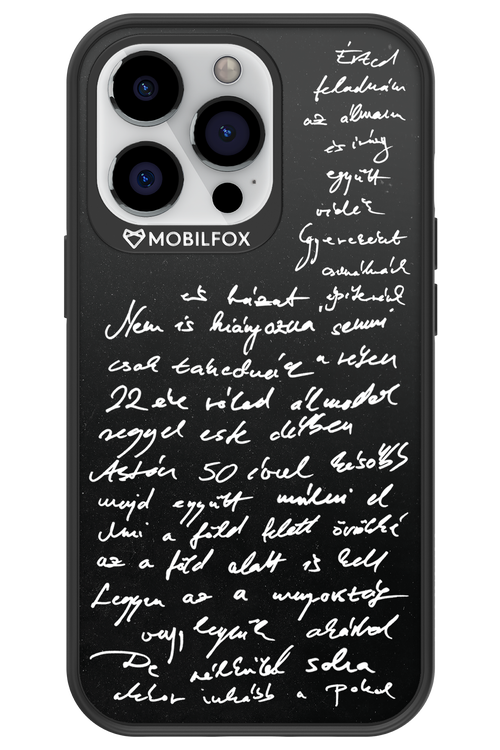 Érted
feladnám
az álmaim
és irány
együtt
vidék
Gyerekeket
csinálnánk
MOBILFOX
és házat építenénk
Nem is hiányozna semmi
csak takednék a réten
22 éve rólad álmodok
reggel este délben
Aztán 50 évvel később
majd együtt múlni el
Ami a föld felett örökké
az a föld alatt is kell
Legyen az a mennyország
vagy legyünk akárhol
De nélküled soha
akkor inkább a pokol